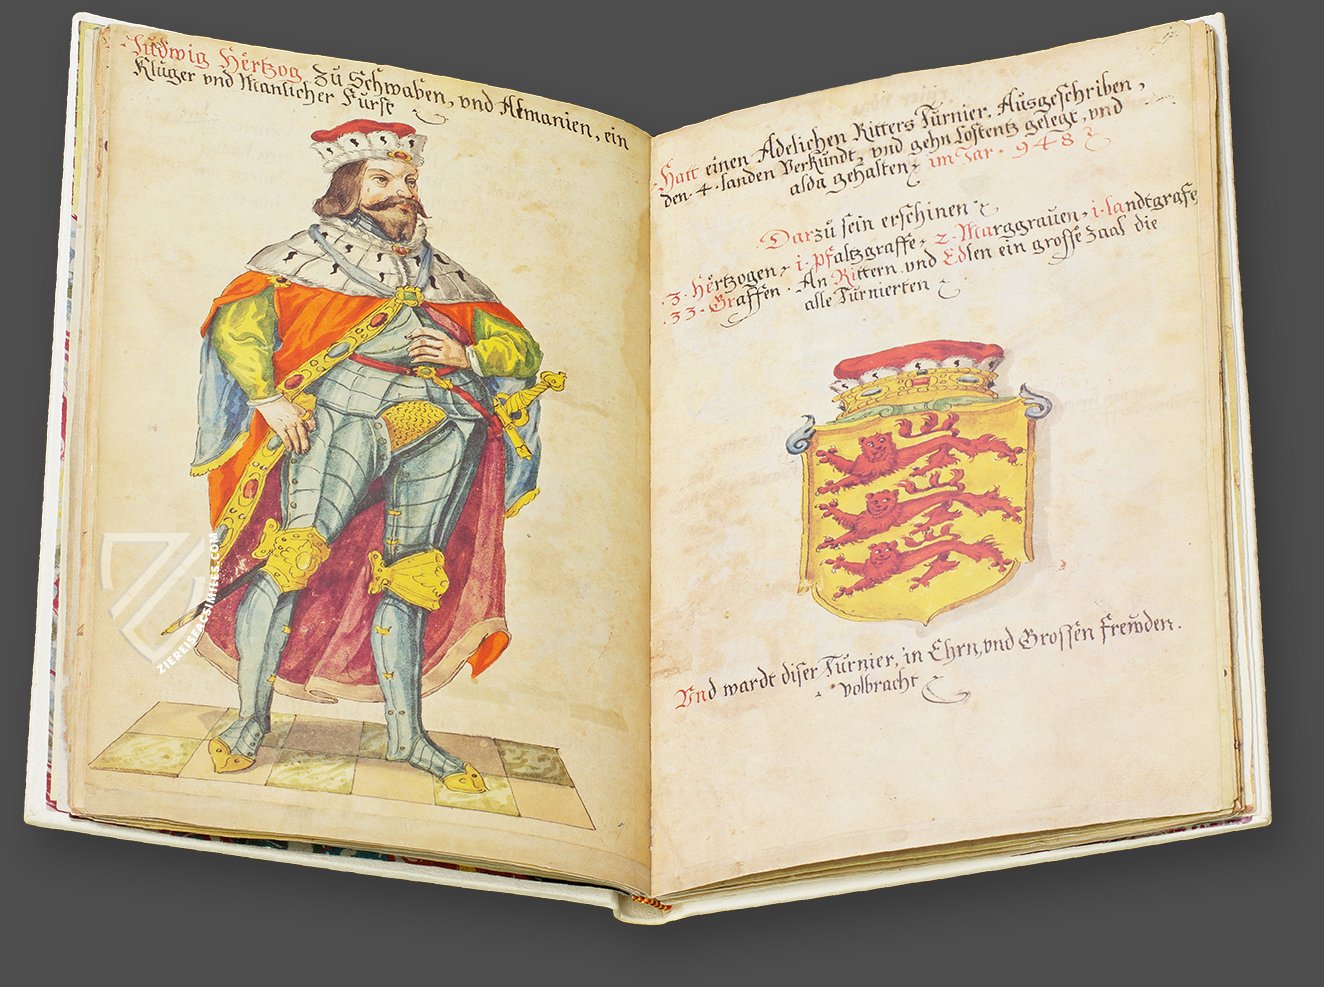 Ludwig Hertzog zu Schwaben, vnd Almanien, ein
Kluger vnd Manlicher Fürst
Hatt einen Adelichen Ritters Turnier, Ausgeschriben,
den 4. landen Verkündt, vnd gehn Costentz gelegt, vnd
alda gehalten, im Jar. 948
Darzü sein erschinen
.3. Hertzogen, i. Pfaltzgraffe, 2. Marggrauen, i. landtgrafe
.33. Graffen. An Rittern vnd Edlen ein grosse zaal die
alle Turnierten
Vnd wardt diser Turnier, in Ehrn, vnd Grossen frewden.
volbracht
ZIEREISFACSIMILES.COM